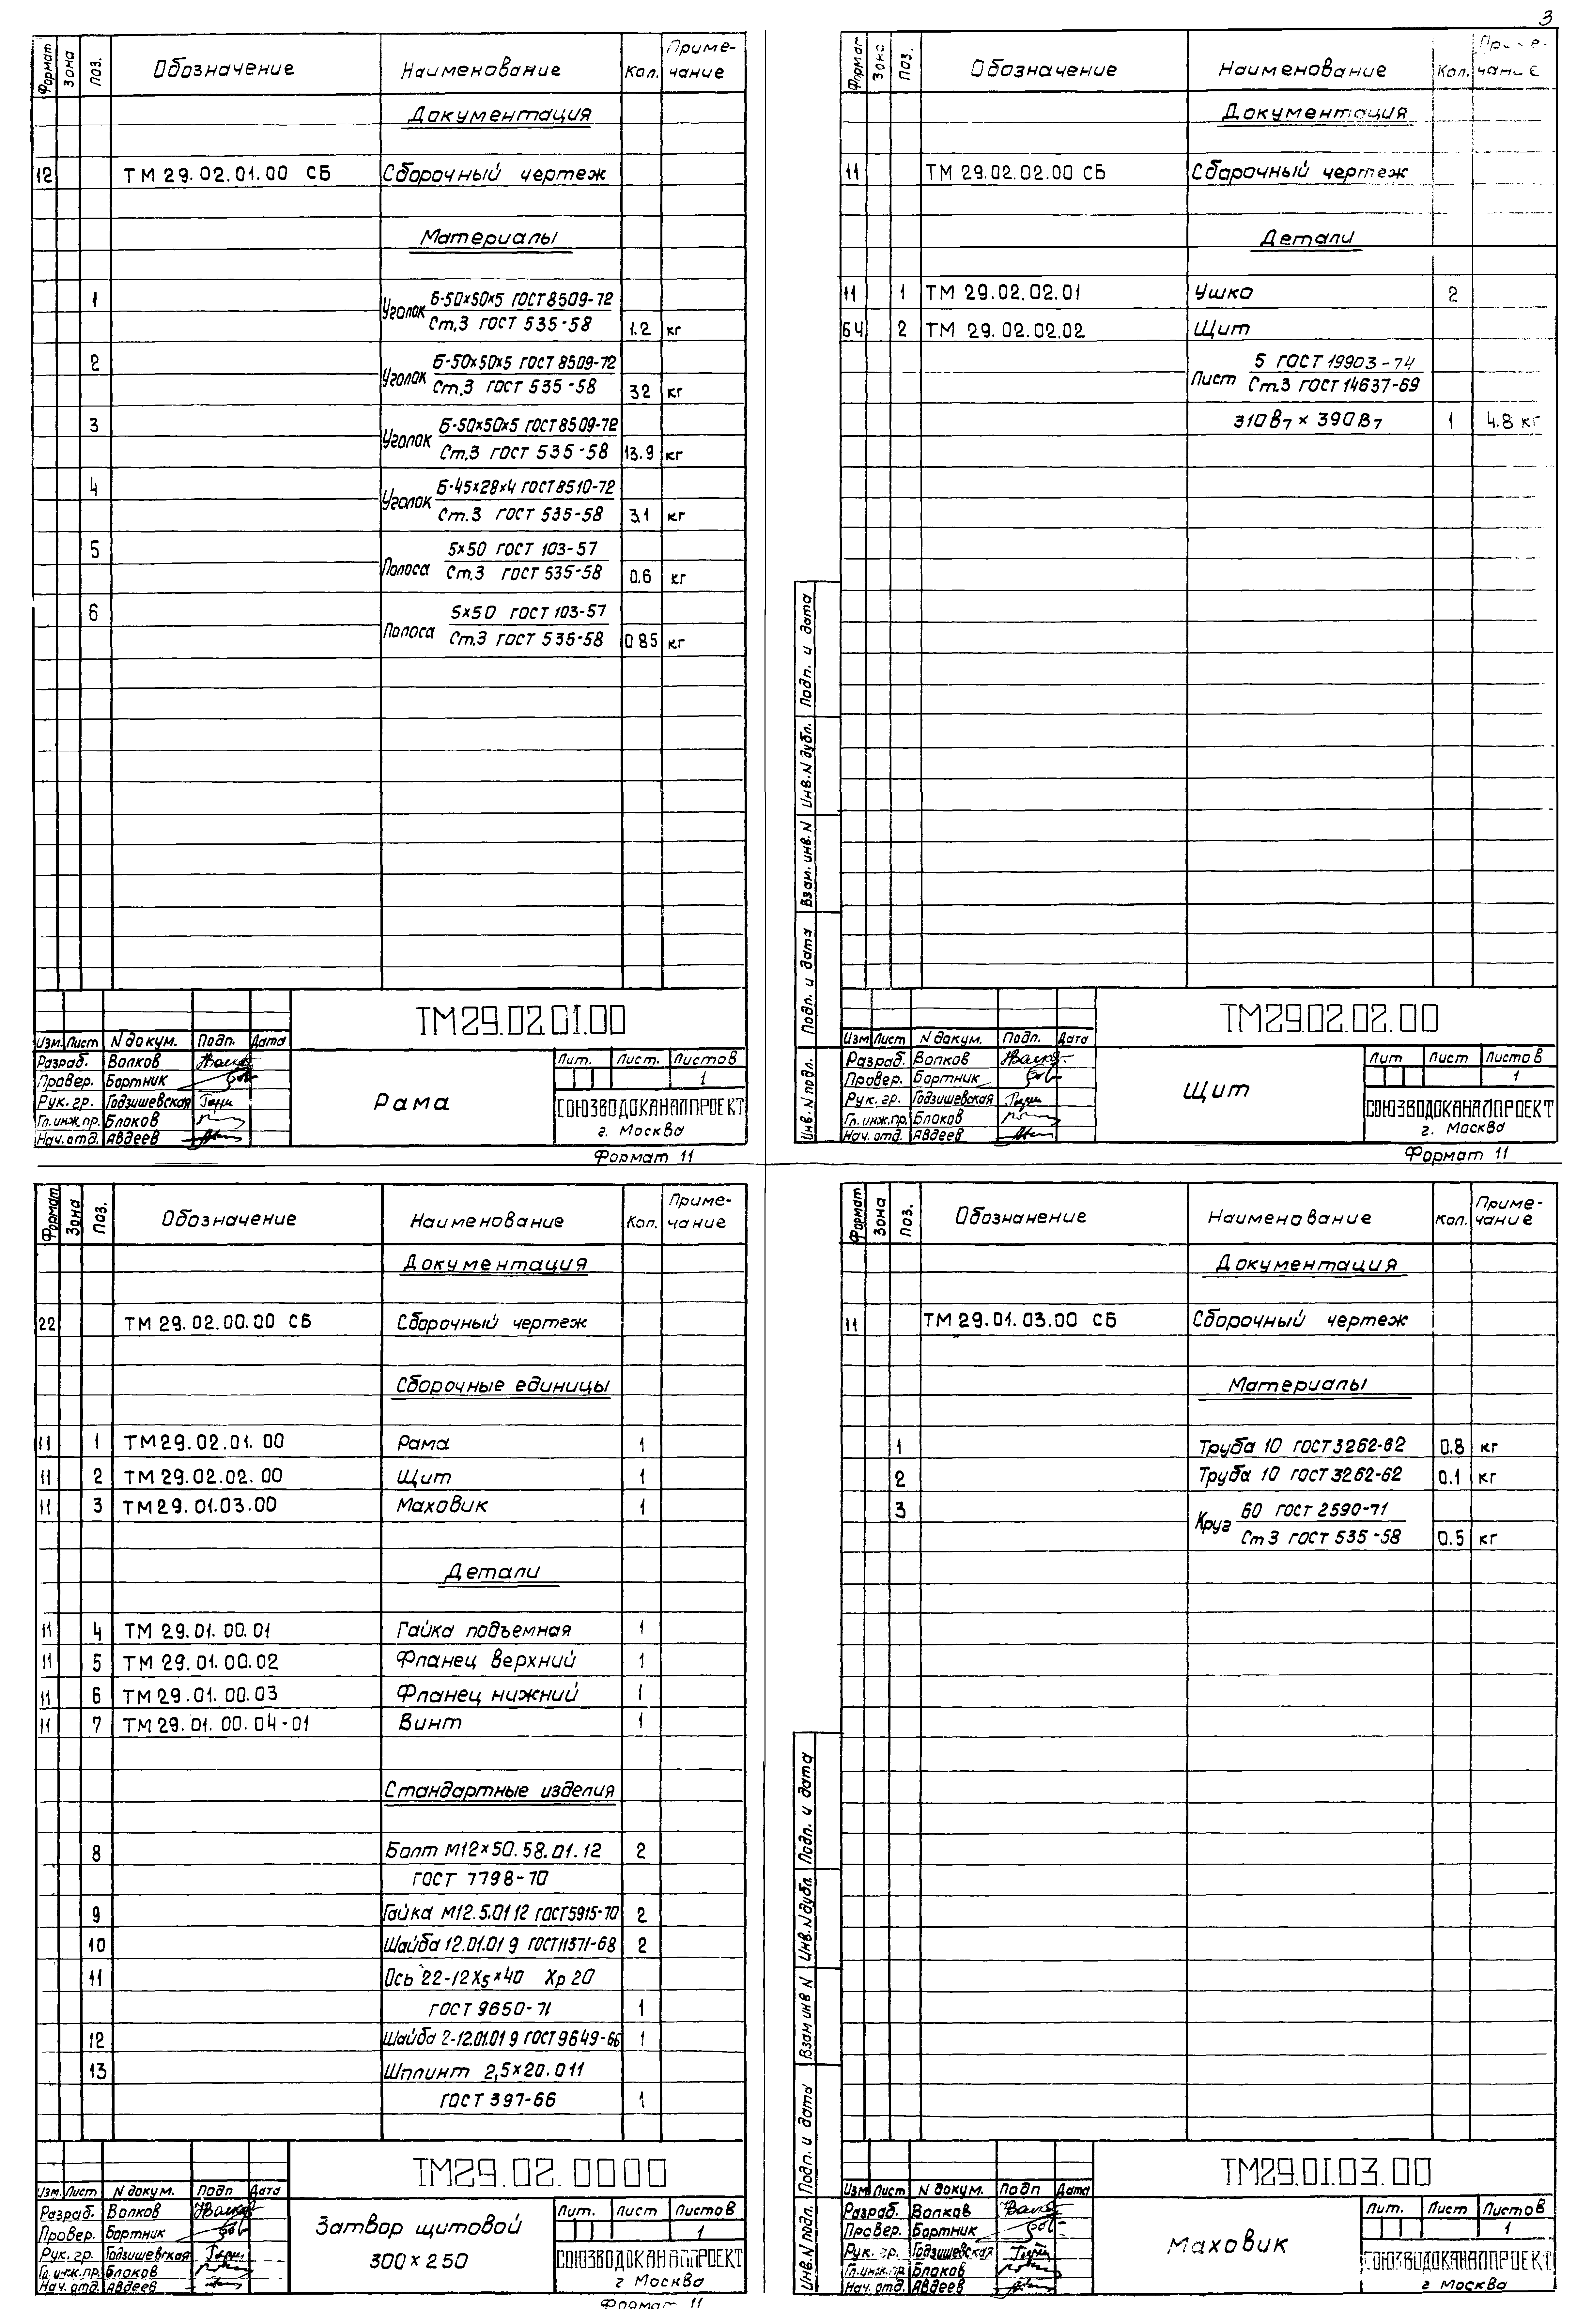 3
Формат Зона Поз. Обозначение Наименование Кол. Приме-
чание
Документация
12 ТМ 29.02.01.00 СБ Сборочный чертеж
Материалы
1 Уголок Б-50×50×5 ГОСТ 8509-72
Ст.3 ГОСТ 535-58 1.2 кг
2 Уголок Б-50×50×5 ГОСТ 8509-72
Ст.3 ГОСТ 535-58 32 кг
3 Уголок Б-50×50×5 ГОСТ 8509-72
Ст.3 ГОСТ 535-58 13.9 кг
4 Уголок Б-45×28×4 ГОСТ 8510-72
Ст.3 ГОСТ 535-58 3.1 кг
5 Полоса 5×50 ГОСТ 103-57
Ст.3 ГОСТ 535-58 0.6 кг
6 Полоса 5×50 ГОСТ 103-57
Ст.3 ГОСТ 535-58 0 85 кг
ТМ29.02.01.00
Изм. Лист N докум. Подп. Дата
Разраб. Волков
Провер. Бортник
Рук. гр. Годзишевская
Гл. инж.пр. Блоков
Нач. отд. Авдеев
Рама
Лит. Лист. Листов
1
СОЮЗВОДОКАНАЛПРОЕКТ
г. Москва
Формат 11
Формат Зона Поз. Обозначение Наименование Кол. Приме-
чание
Документация
11 ТМ 29.02.02.00 СБ Сборочный чертеж
Детали
11 1 ТМ 29.02.02.01 Ушко 2
БЧ 2 ТМ 29.02.02.02 Щит
Лист 5 ГОСТ 19903-74
Ст.3 ГОСТ 14637-69
310В7 × 390В7 1 4.8 кг
Подп. и дата
Инв. N дубл.
Взам. инв. N
Подп. и дата
Инв. N подл.
ТМ29.02.02.00
Изм Лист N докум. Подп. Дата
Разраб. Волков
Провер. Бортник
Рук. гр. Годзишевская
Гл. инж.пр. Блоков
Нач. отд. Авдеев
Щит
Лит Лист Листов
1
СОЮЗВОДОКАНАЛПРОЕКТ
г. Москва
Формат 11
Формат Зона Поз. Обозначение Наименование Кол. Приме-
чание
Документация
22 ТМ 29.02.00.00 СБ Сборочный чертеж
Сборочные единицы
11 1 ТМ29.02.01.00 Рама 1
11 2 ТМ 29.02.02.00 Щит 1
11 3 ТМ29.01.03.00 Маховик 1
Детали
11 4 ТМ 29.01.00.01 Гайка подъемная 1
11 5 ТМ 29.01.00.02 Фланец верхний 1
11 6 ТМ29.01.00.03 Фланец нижний 1
11 7 ТМ 29.01.00.04-01 Винт 1
Стандартные изделия
8 Болт М12×50.58.01.12 2
ГОСТ 7798-70
9 Гайка М12.5.01 12 ГОСТ5915-70 2
10 Шайба 12.01.01 9 ГОСТ11371-68 2
11 Ось 22-12Х5×40 Хр 20
ГОСТ 9650-71 1
12 Шайба 2-12.01.01 9 ГОСТ9649-66 1
13 Шплинт 2,5×20.011
ГОСТ 397-66 1
ТМ29.02.0000
Изм. Лист N докум. Подп Дата
Разраб. Волков
Провер. Бортник
Рук. гр. Годзишевская
Гл. инж.пр. Блоков
Нач. отд. Авдеев
Затвор щитовой
300 × 250
Лит. Лист Листов
1
СОЮЗВОДОКАНАЛПРОЕКТ
г Москва
Формат 11
Формат Зона Поз. Обозначение Наименование Кол. Приме-
чание
Документация
11 ТМ 29.01.03.00 СБ Сборочный чертеж
Материалы
1 Труба 10 ГОСТ 3262-62 0.8 кг
2 Труба 10 ГОСТ 3262-62 0.1 кг
3 Круг 60 ГОСТ 2590-71
Ст 3 ГОСТ 535-58 0.5 кг
Подп. и дата
Инв. N дубл.
Взам инв N
Подп. и дата
Инв. N подл.
ТМ29.01.03.00
Изм Лист N докум. Подп Дата
Разраб. Волков
Провер. Бортник
Рук. гр. Годзишевская
Гл. инж.пр. Блоков
Нач. отд. Авдеев
Маховик
Лит. Лист Листов
1
СОЮЗВОДОКАНАЛПРОЕКТ
г Москва